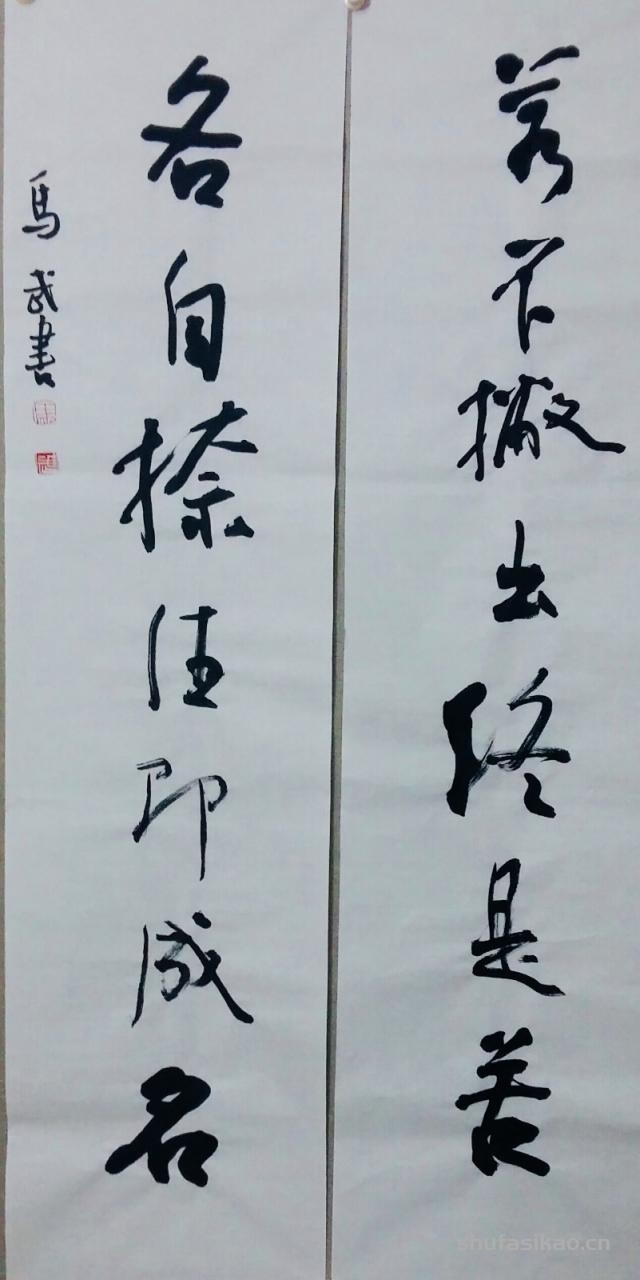 若不撇出终是苦
各自捺住即成名
馬武書
shufasikao.cn